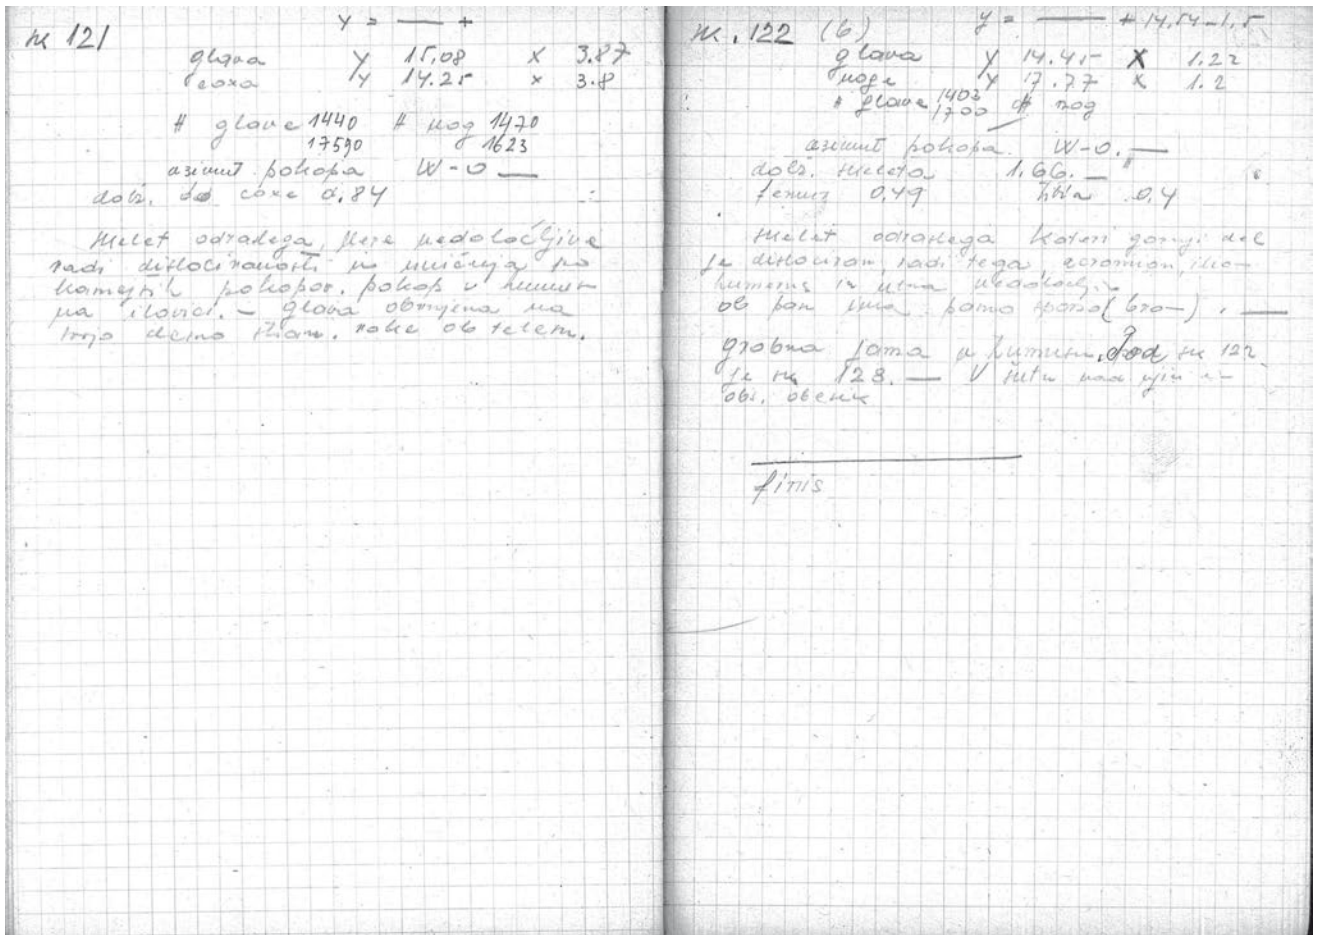 y = — +
sk 121
glava y 15.08 x 3.87
coxa y 14.25 x 3.8
# glave 1440 # nog 1470
17590 1623
azimut pokopa W-O —
dolž. do coxe 0.84
skelet odraslega, mere nedoločljive
radi dislociranosti in uničenja po
kamnjših pokopov. pokop v humusu
na ilovici. — glava obrnjena na
svojo desno stran. roke ob telesu.
y = — + 14.54-1.5
sk. 122 (6)
glava y 14.45 x 1.22
noge y 17.77 x 1.2
# glave 1403 # nog
1700
azimut pokopa W-O. —
dolž. skeleta 1.66. —
femur 0.49 tibia 0.4
skelet odraslega kateri gornji del
je dislociran, radi tega, acromion,
humerus in ulna nedoločlj.
ob pan ima (bro—). —
grobna jama v humusu. Pod sk 122
je sk 128. — V nad njim
obs. obenk
finis